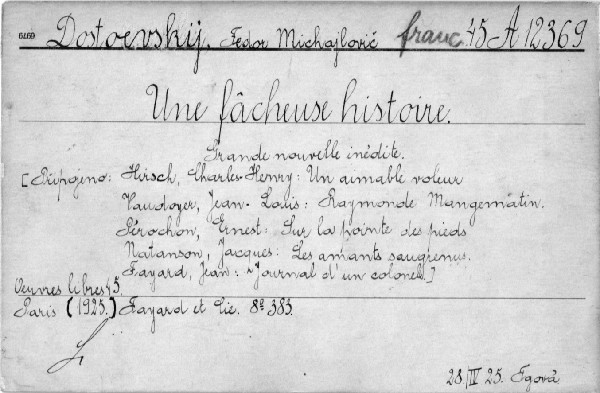 Dostoevskij, Fedor Michajlovič franc. 45 A 12369
Une fâcheuse histoire.
Grande nouvelle inédite.
[Připojeno: Hirsch, Charles-Henry: Un aimable voleur
Vaudoyer, Jean-Louis: Raymonde Mangematin.
Pérochon, Ernest: Sur la pointe des pieds
Natanson, Jacques: Les amants saugrenus.
Fayard, Jean: Journal d'un colonel.]
Oeuvres libres 45.
Paris (1925.) Fayard et Cie. 8° 383.
28/IV 25.